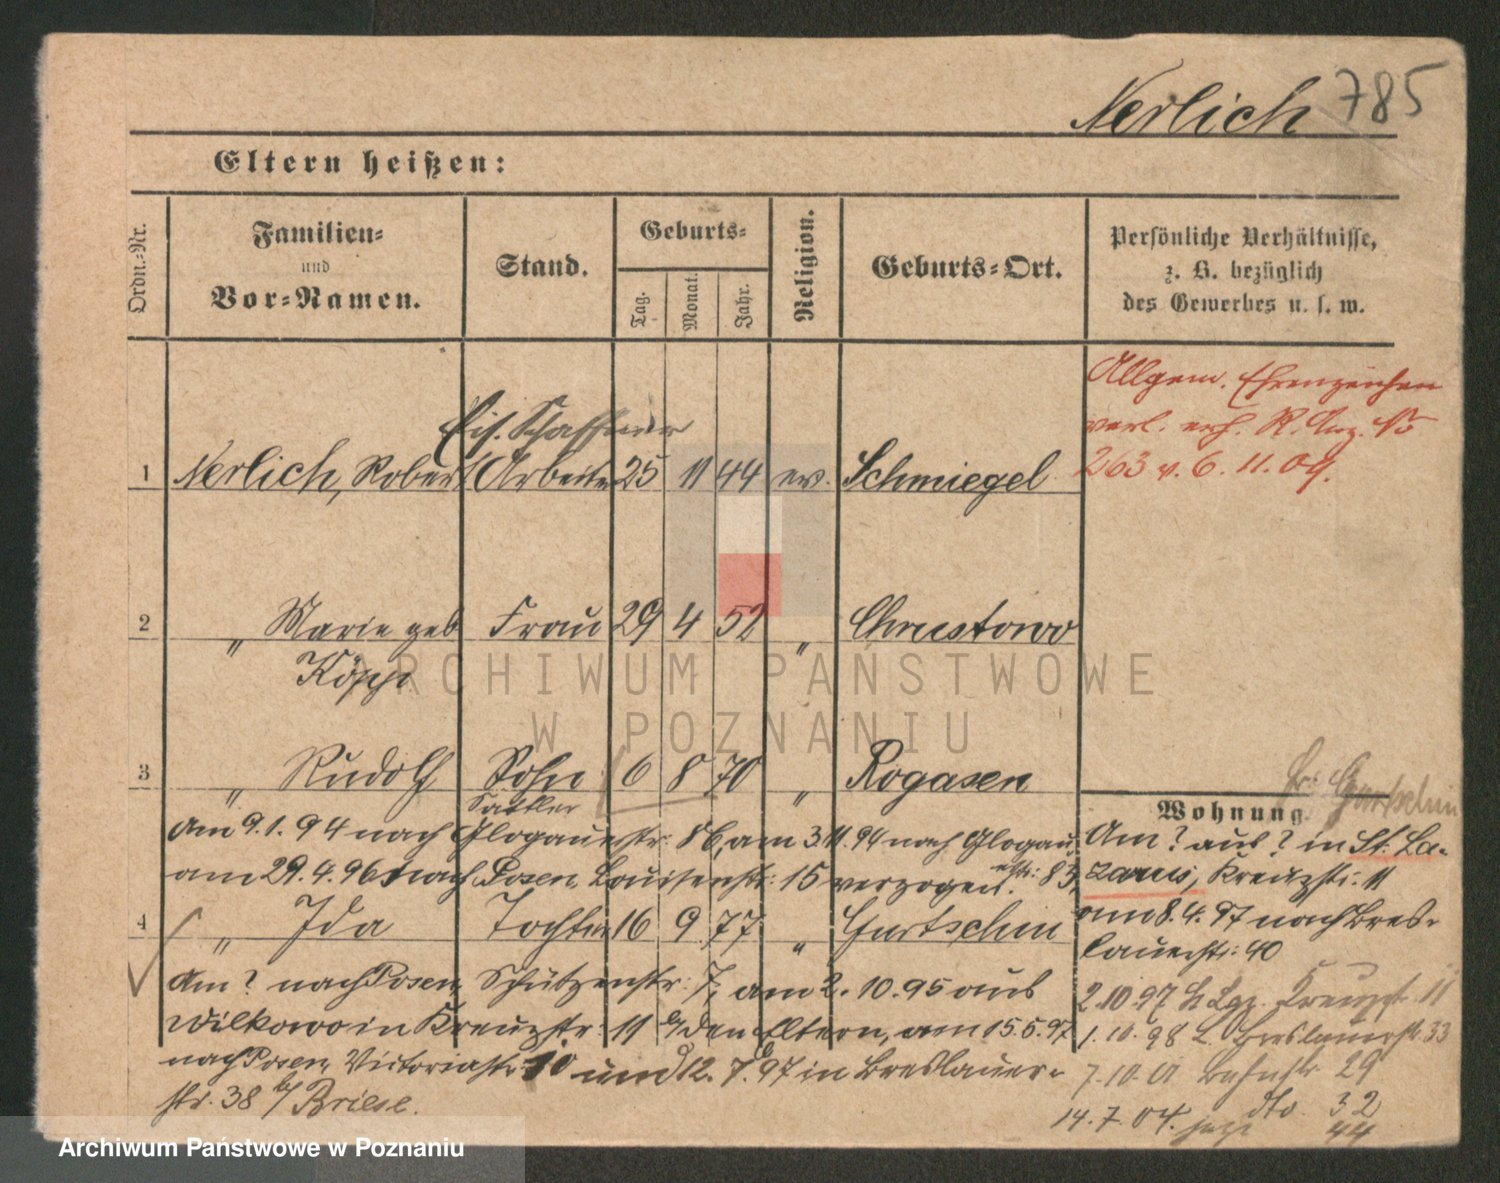 Nerlich 785
Eltern heißen:
Ordn.-Nr.
Familien-
und
Vor-Namen.
Stand.
Geburts-
Tag.
Monat.
Jahr.
Religion.
Geburts-Ort.
Persönliche Verhältnisse,
z. B. bezüglich
des Gewerbes u. s. w.
Allgem. Ehrenzeichen
verl. R. Anz. No
263 v. 6. 11. 09.
Eis. Schaffner
1 Nerlich, Robert Arbeiter 25 11 44 ev. Schmiegel
2 " Marie geb Frau 29 4 52 " Chrustowo
Köppe
3 " Rudolf Sohn 6 8 70 " Rogasen
Sattler
Am 9. 1. 94 nach Glogauerstr: 86, am 3.11.94 nach Glogauer-
am 29. 4. 96 nach Posen, Louisenstr: 15 verzogen. str: 85,
4 " Ida Tochter 16 9 77 " Gurtschin
Am ? nach Posen, Schützenstr: 7, am 2. 10. 95 aus
Wilkowo in Kreuzstr: 11 b/ den Eltern, am 15. 5. 97
nach Posen, Victoriastr: 10 und 12. 7. 97 in Breslauer-
str. 38 b/ Briese.
Gurtschin
Wohnung
Am ? aus ? in St. La-
zarus, Kreuzstr: 11
am 8. 4. 97 nach Bres-
lauerstr: 40
2.10.97 Kreuzstr. 11
1. 10. 98 L. Breslauerstr. 33
7.10.01 Bahnstr. 29
14. 7. 04. jetzt dto. 32
44
ARCHIWUM PAŃSTWOWE
W POZNANIU
Archiwum Państwowe w Poznaniu